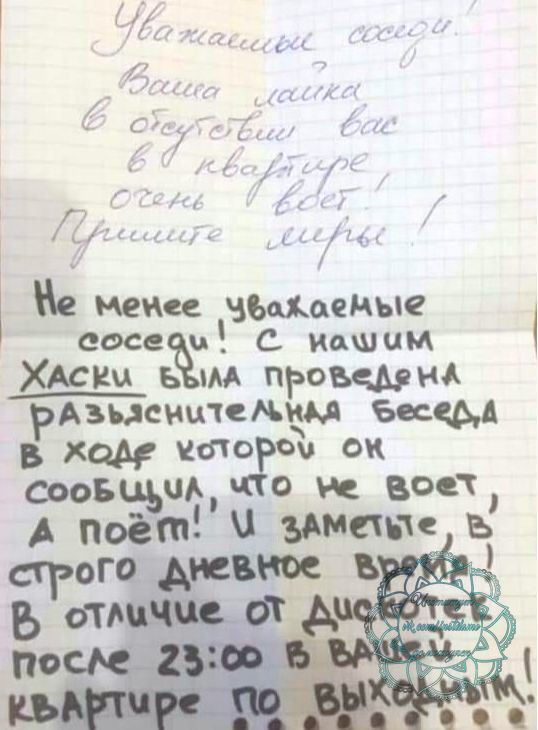 Уважаемые соседи!
Ваша лайка
в отсутствии вас
в квартире,
очень воет!
Примите меры!
Не менее уважаемые
соседи! С нашим
ХАСКИ была проведена
разъяснительная беседа
в ходе которой он
сообщил, что не воет,
а поёт! И заметьте, в
строго дневное время!
В отличие от дискотек
после 23:00 в вашей
квартире по выходным!